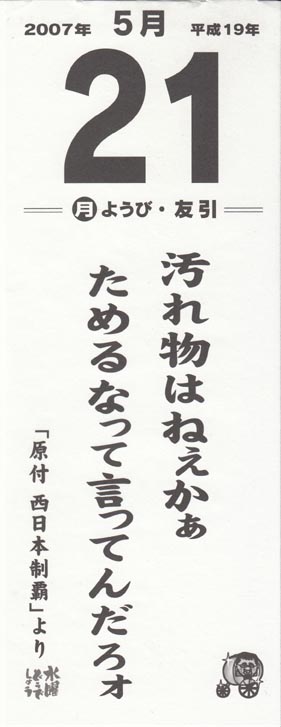 2007年 5月 平成19年
21
月ようび・友引
汚れ物はねぇかぁ
ためるなって言ってんだろォ
「原付 西日本制覇」より
水曜
どうで
しょう